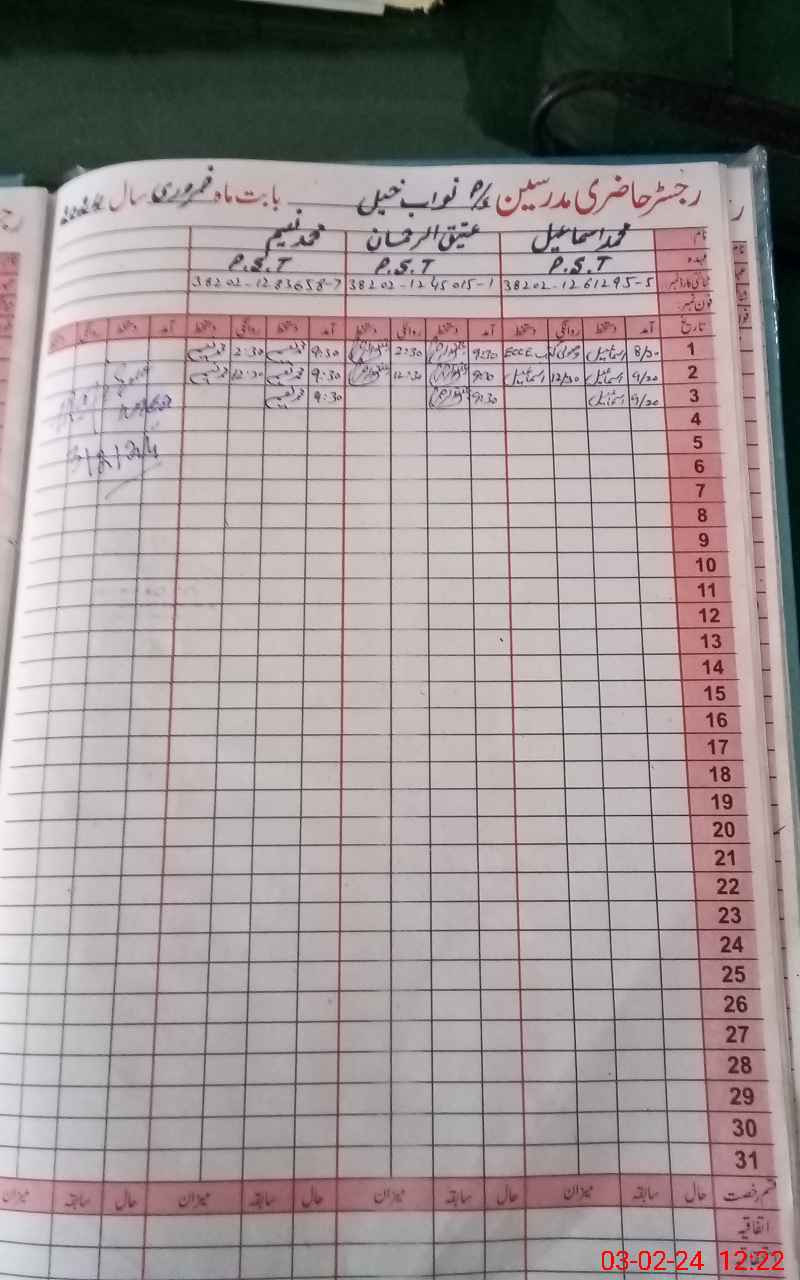 رجسٹر حاضری مدرسین P/S نواب خیل بابت ماہ فروری سال 2024
نام محمد اسماعیل عتیق الرحمان محمد نسیم
عہدہ P.S.T P.S.T P.S.T
شناختی کارڈ نمبر 38202-1261295-5 38202-1245015-1 38202-1283658-7
فون نمبر
تاریخ آمد دستخط روانگی دستخط آمد دستخط روانگی دستخط آمد دستخط روانگی دستخط آمد دستخط روانگی دستخط
1 8/20 اسماعیل ECCE 9:30 2:30 9:30 2:30
2 9/20 اسماعیل 12/30 اسماعیل 9:30 12:30 9:30 12:30
3 9/20 اسماعیل 9:30 9:30
3/2/24
4
5
6
7
8
9
10
11
12
13
14
15
16
17
18
19
20
21
22
23
24
25
26
27
28
29
30
31
قسم رخصت حال سابقہ میزان حال سابقہ میزان حال سابقہ میزان حال سابقہ میزان
اتفاقیہ
03-02-24 12:22